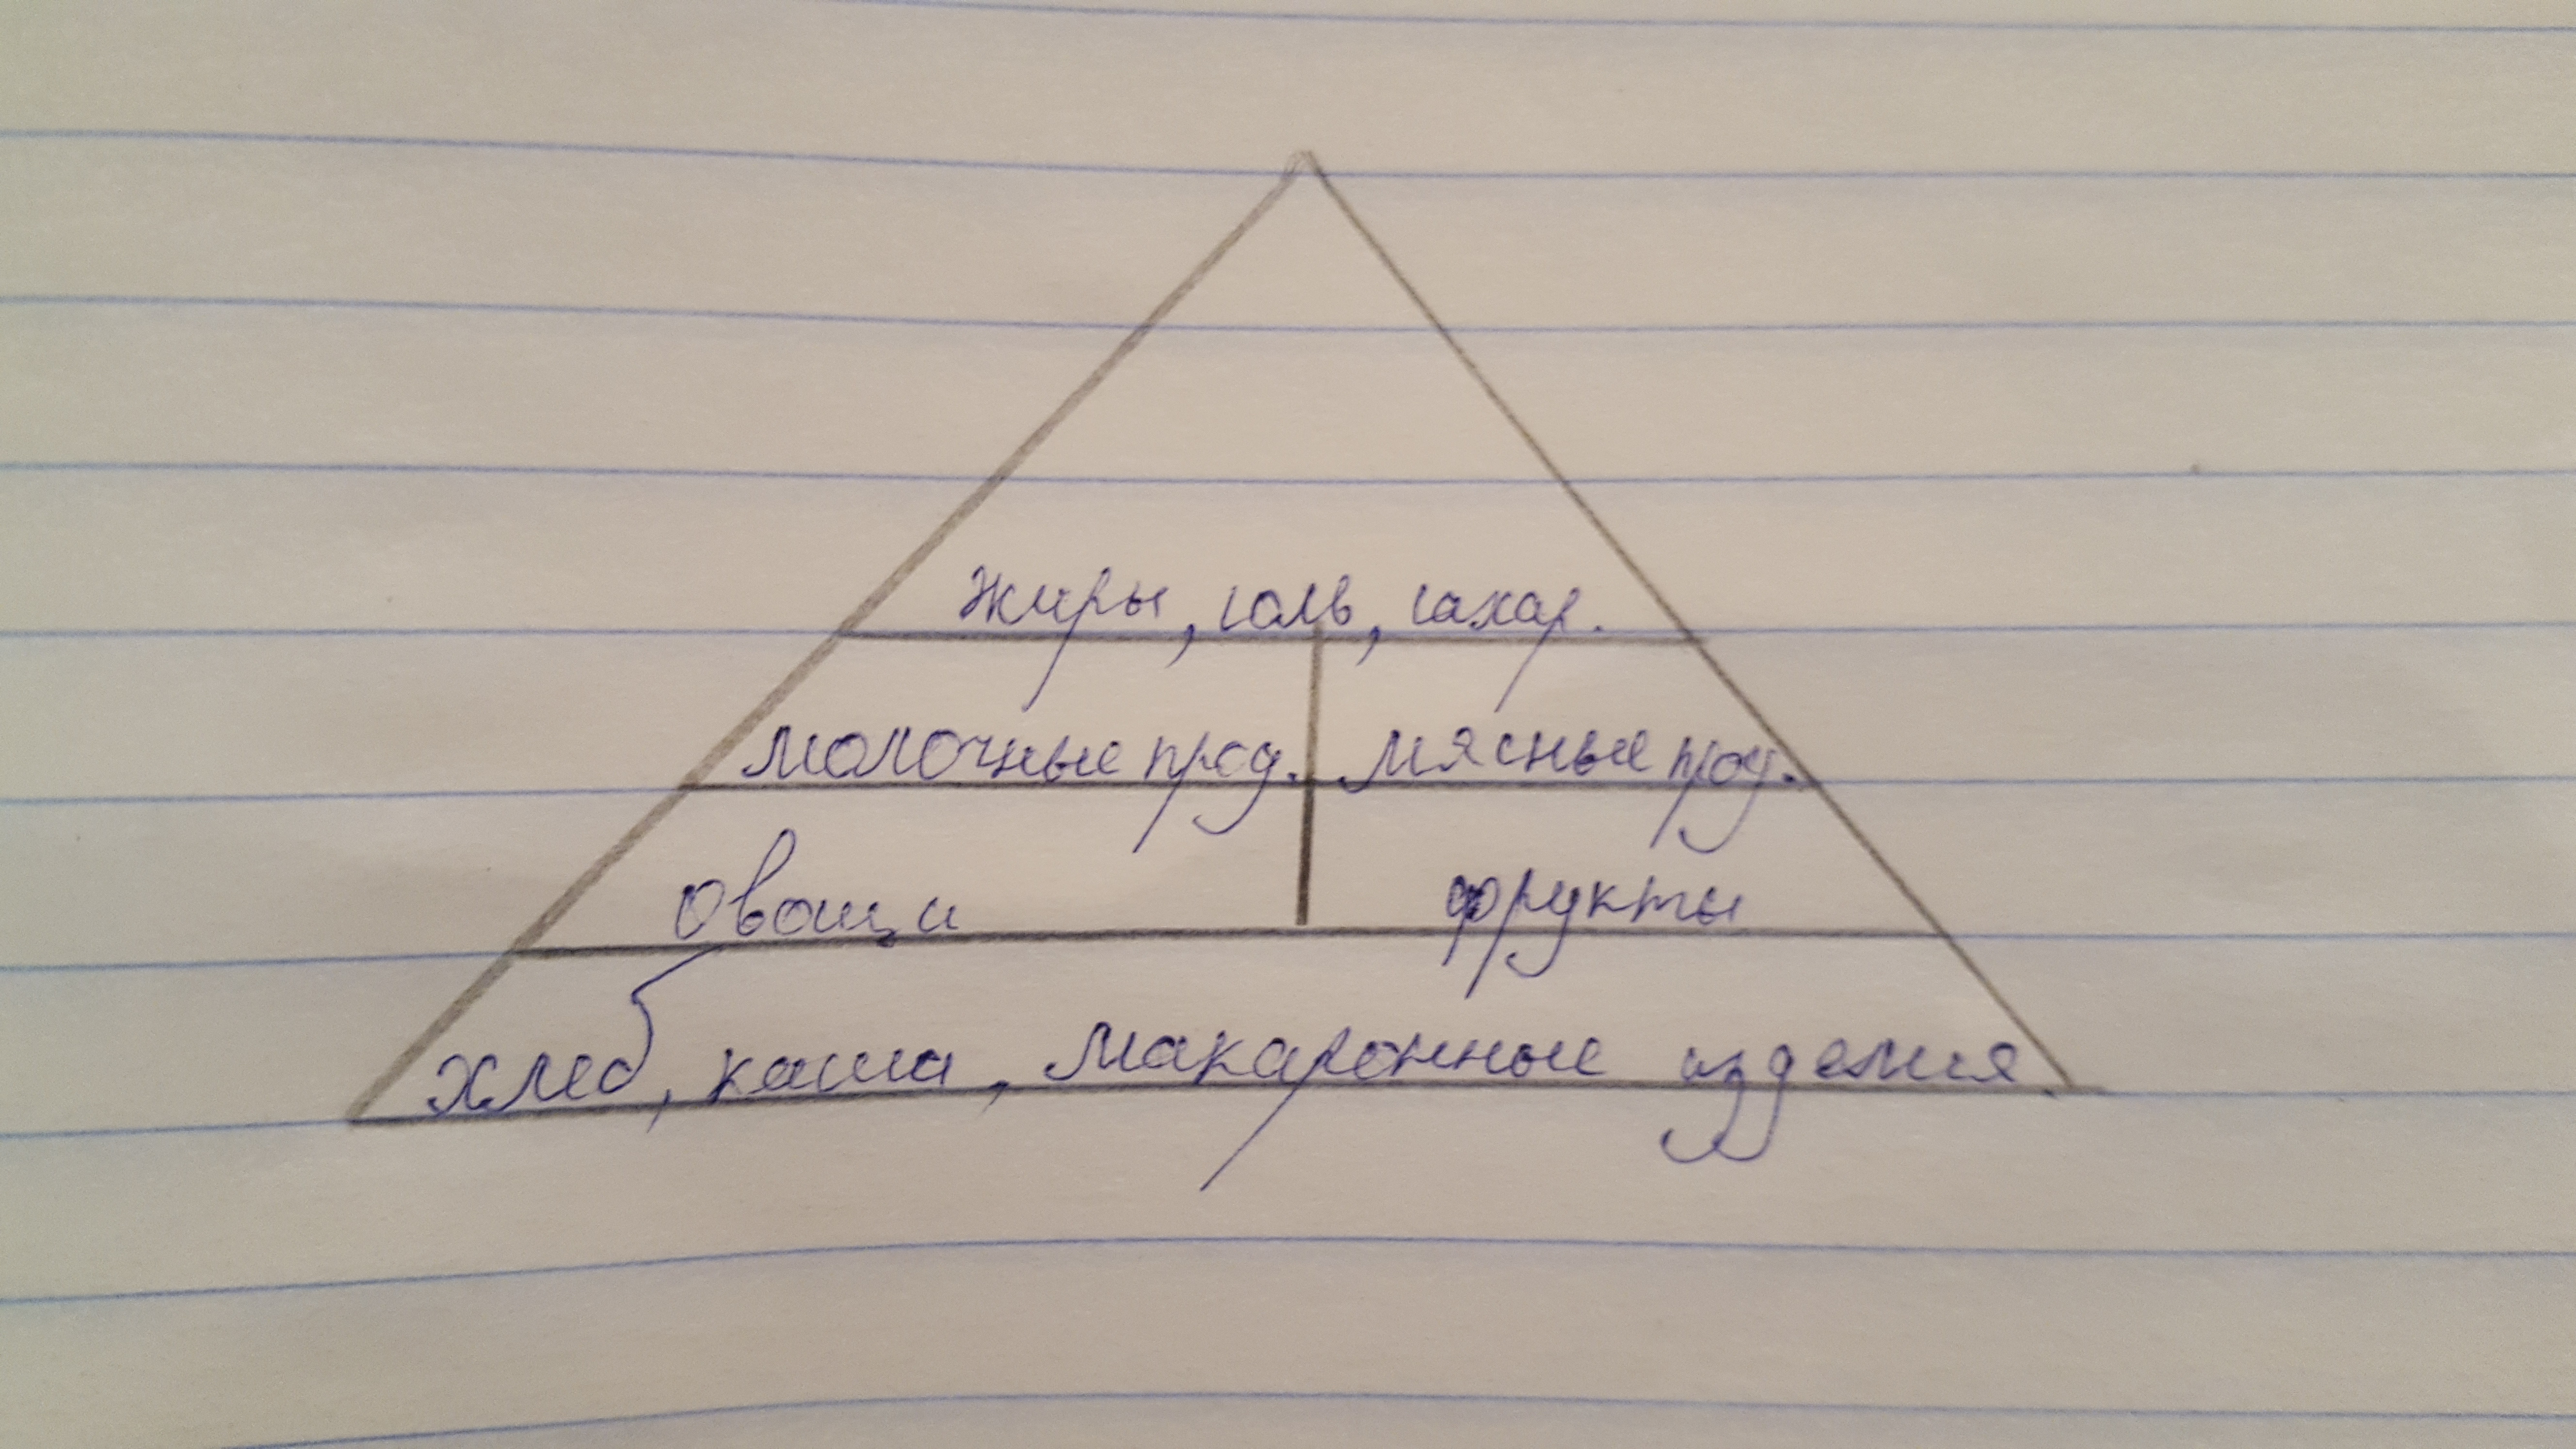 жиры, соль, сахар.
молочные прод. мясные прод.
овощи фрукты
хлеб, каша, макаронные изделия